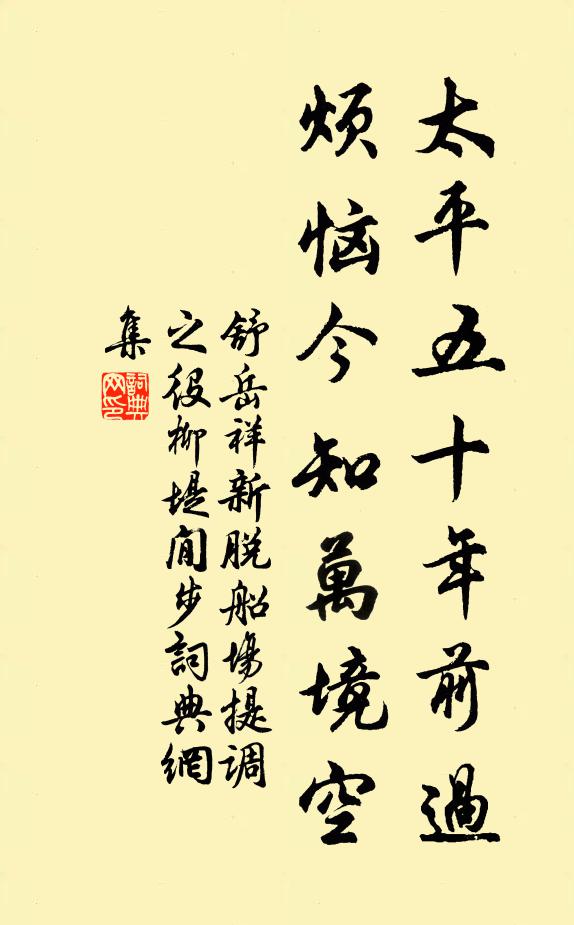 太平五十年前過
烦恼今知萬境空
舒岳祥新脱船場提调
之役柳堤閒步詞典網
集
詞典网印